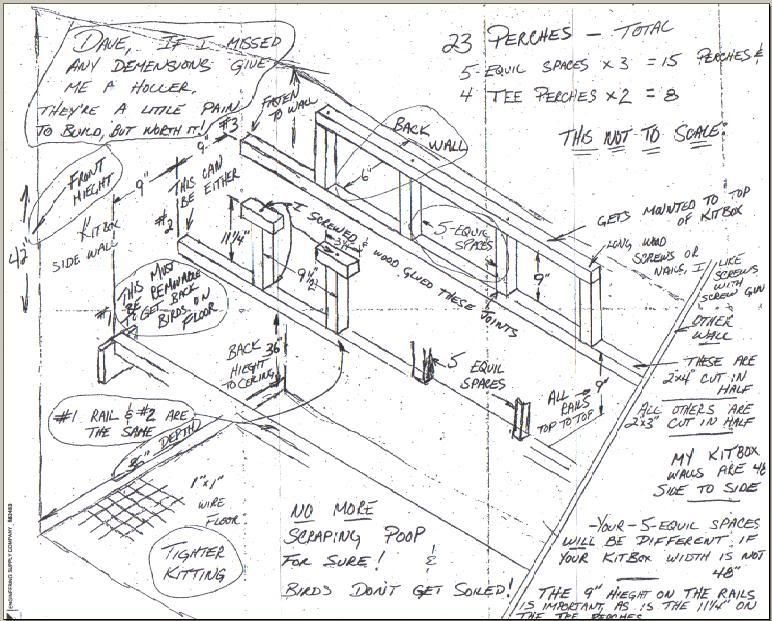 DAVE, IF I MISSED
ANY DEMENSIONS GIVE
ME A HOLLER.
THEY'RE A LITTLE PAIN
TO BUILD, BUT WORTH IT!
23 PERCHES - TOTAL
5-EQUIL SPACES x 3 = 15 PERCHES &
4 TEE PERCHES x 2 = 8
THIS NOT TO SCALE.
FASTEN
TO WALL
#3
9"
BACK
WALL
6"
FRONT
HIEGHT
42"
9"
THIS CAN
BE EITHER
#2
KITBOX
SIDE WALL
11 1/4"
I SCREWED &
WOOD GLUED THESE
JOINTS
9 1/2"
5-EQUIL
SPACES
GETS MOUNTED TO TOP
OF KITBOX
LONG WOOD
SCREWS OR
NAILS, I LIKE
SCREWS
WITH
SCREW GUN
9"
OTHER
WALL
THIS MUST
BE REMOVABLE
TO GET BACK
BIRDS ON
FLOOR
#1
BACK 36"
HIEGHT
TO CEILING
5 EQUIL
SPACES
ALL
RAILS
TOP TO TOP
9"
THESE ARE
2x4" CUT IN
HALF
ALL OTHERS ARE
2x3" CUT IN HALF
#1 RAIL & #2 ARE
THE SAME
36" DEPTH
1"x1"
WIRE
FLOOR
TIGHTER
KITTING
NO MORE
SCRAPING POOP
FOR SURE! &
BIRDS DON'T GET SOILED!
MY KITBOX
WALLS ARE 48
SIDE TO SIDE
-YOUR-5-EQUIL SPACES
WILL BE DIFFERENT IF
YOUR KITBOX WIDTH IS NOT
48"
THE 9" HIEGHT ON THE RAILS
IS IMPORTANT, AS IS THE 11 1/4" ON
THE TEE PERCHES
ENGINEERING SUPPLY COMPANY